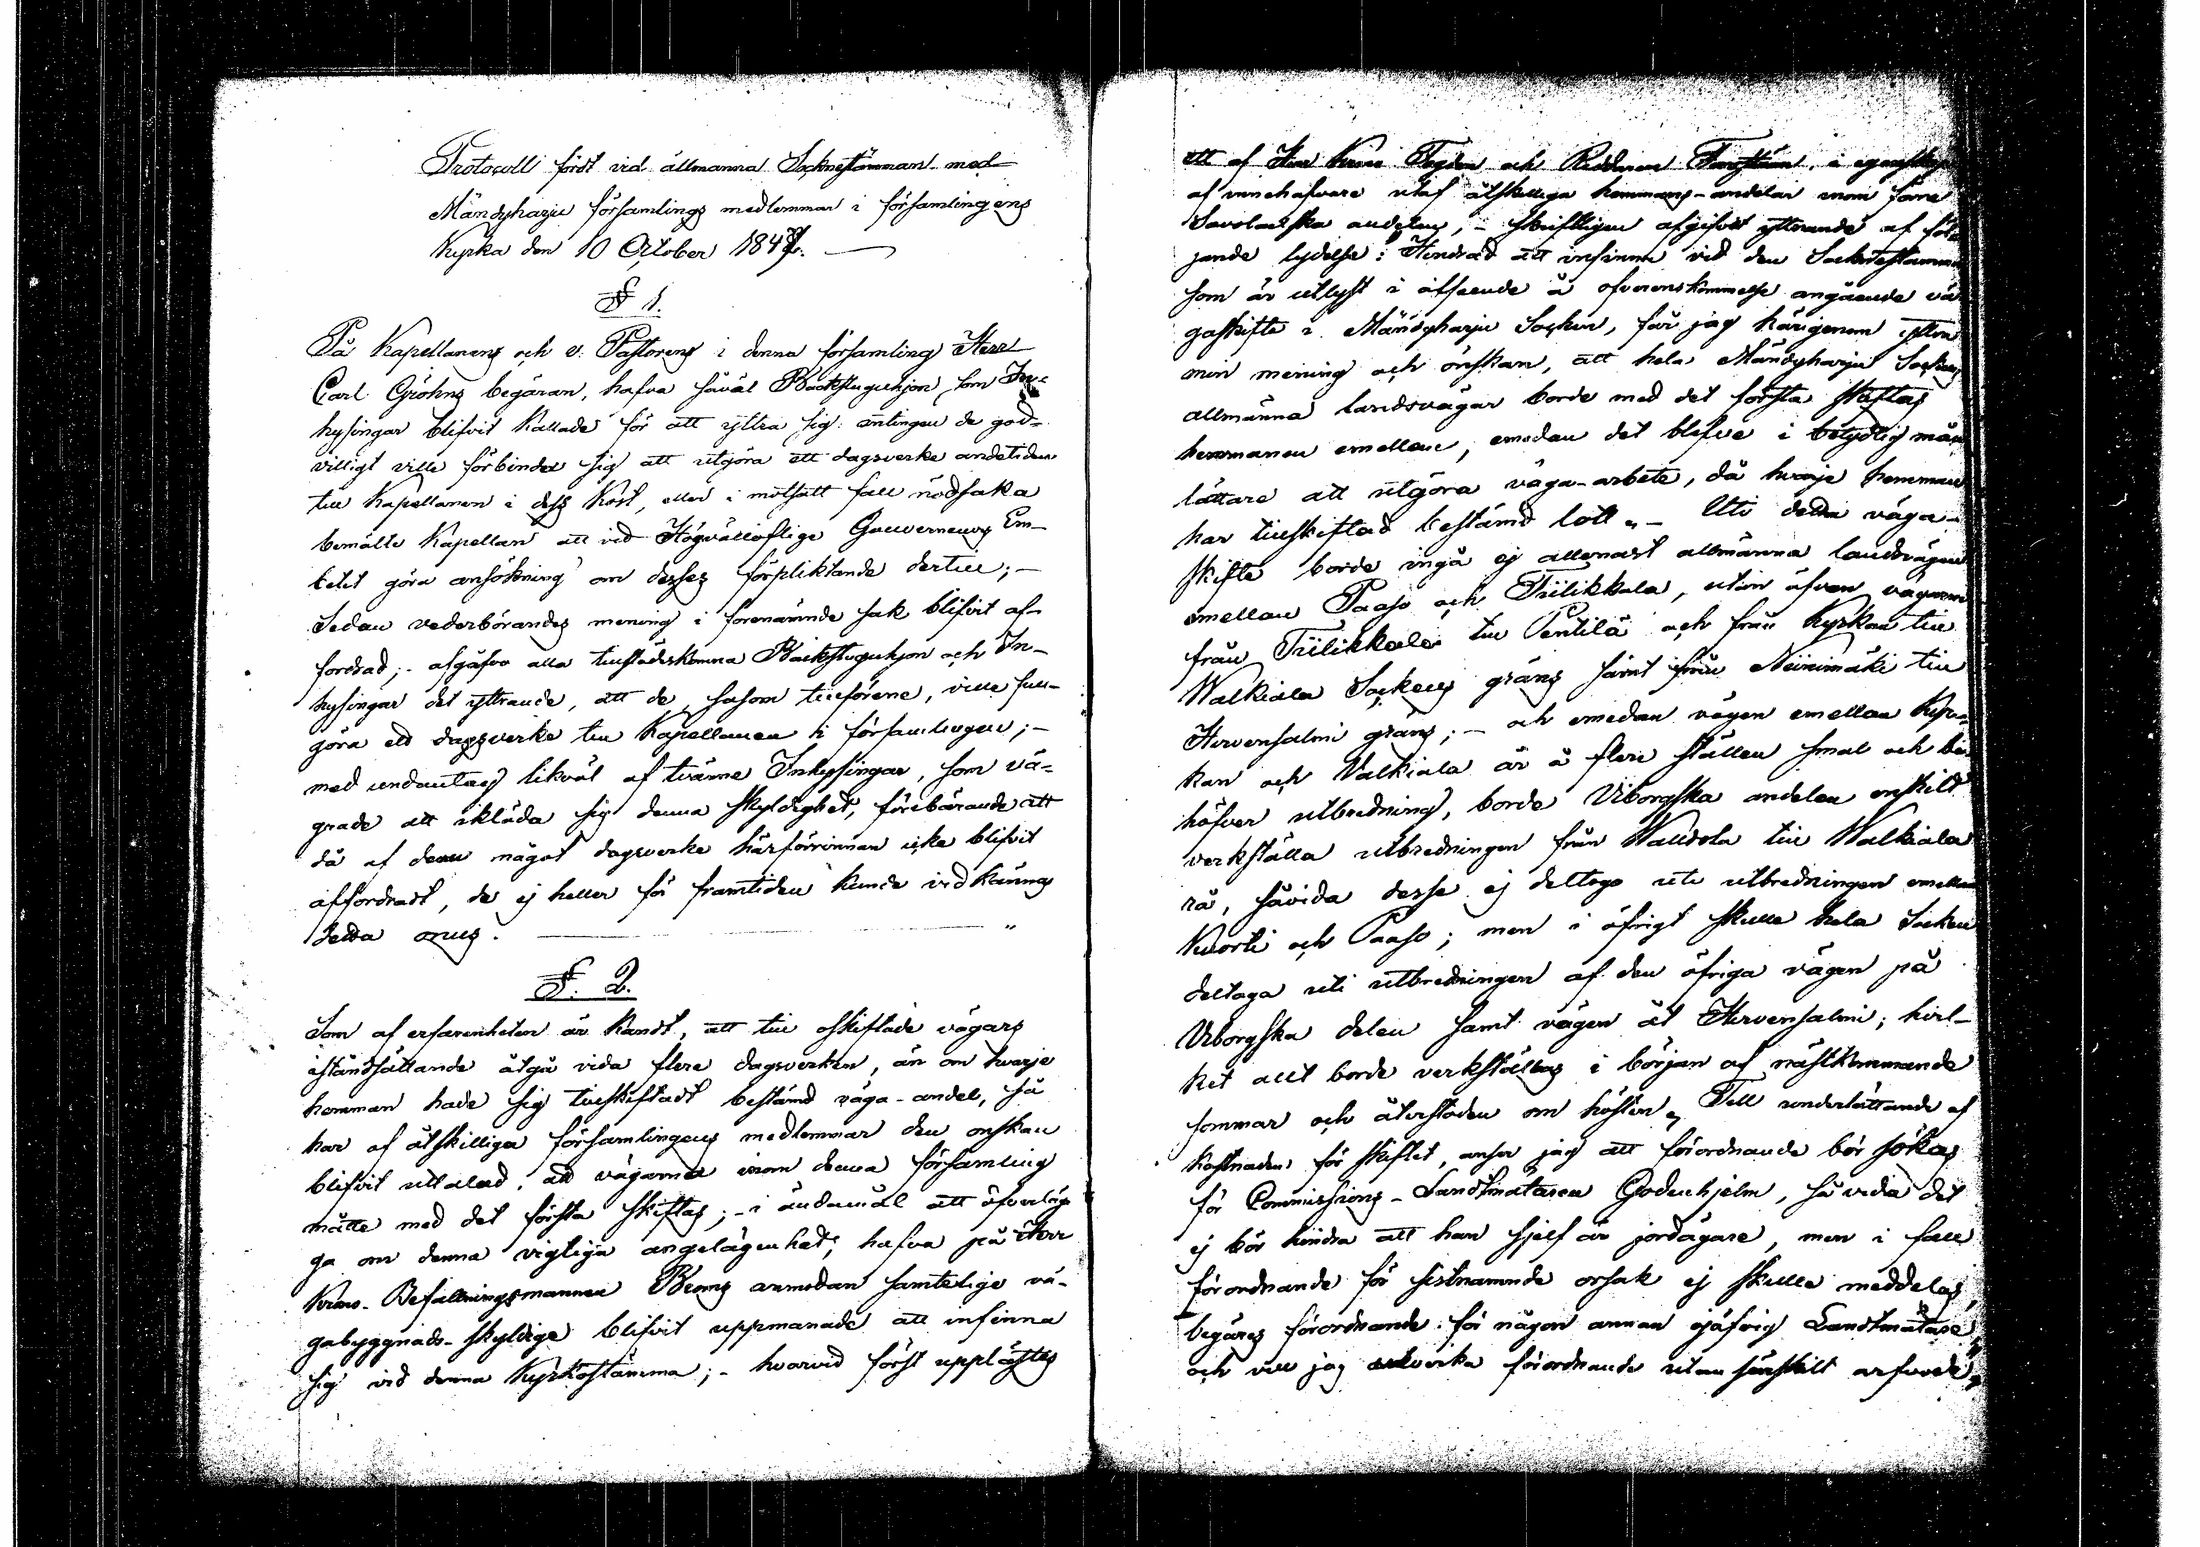 Protocoll fördt vid allmänna Socknestämman med
Mändyharju församlings medlemmar i församlingens
Kyrka den 10 October 1847.
§ 1.
På Kapellanens och v. Pastorens i denna församling Herr
Carl Gröhns begäran, hafva såväl Backstuguhjon som In-
hysingar blifvit kallade för att yttra sig: antingen de god-
villigt ville förbinda sig att utgöra ett dagsverke andetiden
till Kapellanen i dess kost, eller i motsatt fall nödsaka
bemälte Kapellan att vid Högvällofliga Gouverneurs Em-
betet göra ansökning om desses förpliktande dertill; -
Sedan vederbörandes mening i förenämnde sak blifvit af-
fordrad; - afgåfvo alla tillstädeskomna Backstuguhjon och In-
hysingar det yttrande, att de, såsom tillförene, ville full-
göra ett dagsverke till Kapellanen i församlingen; -
med undantag likväl af tvänne Inhysingar, som vä-
grade att ikläda sig denna skyldighet, förebärande att
då af dem något dagsverke härförrinnan icke blifvit
affordradt, de ej heller för framtiden kunde vidkännas
detta onus.
§. 2.
Som af erfarenheten är kandt, att till oskiftade vägars
iståndsättande åtgå vida flere dagsverken, än om hvarje
hemman hade sig tillskiftadt bestämd väga-andel, så
har af åtskilliga församlingens medlemmar den önskan
blifvit uttalad, att vägarna inom denna församling
måtte med det första skiftas; - i ändamål att öfverläg-
ga om denna vigtiga angelägenhet, hafva på Herr
Krono-Befallningsmannen Bloms anmodan samtelige vä-
gabyggnads-skyldige blifvit uppmanade att infinna
sig vid denna Kyrkostämma; - hvarvid först upplästes
ett af Herr Krono Fogden och Riddaren i egenskap
af innehafvare utaf åtskilliga hemmans-andelar inom förra
Savolakska andelen, - skriftligen afgifvet yttrande af föl-
jande lydelse: Hindrad att infinna vid den Sockenstämma
som är utlyst i afseende å öfverenskommelse angående vä-
gaskifte i Mändyharju Socken, får jag härigenom yttra
min mening och önskan, att hela Mändyharju Sockens
allmänna landsvägar borde med det första skiftas
hemmanen emellan, emedan det blefve i betydlig mån
lättare att utgöra väga-arbete, då hvarje hemman
har tillskiftad bestämd lott. - Uti detta väga-
skifte borde ingå ej allenast allmänna landsvägen
emellan Paaso och Tiilikkala, utan äfven vägarne
från Tiilikkala till Pentilä och från Kyrkan till
Walkiala Sockens gräns samt från Neinimäki till
Hirvensalmi gräns; - och emedan vägen emellan Kyr-
kan och Valkiala är å flere ställen smal och be-
höfver utbredning, borde Viborgska andelen enskilt
verkställa utbredningen från Walldola till Walkiala
rå, såvida desse ej deltoge uti utbredningen emellan
Kuorti och Paaso; men i öfrigt skulle hela Socken
deltaga uti utbredningen af den öfriga vägen på
Viborgska delen samt vägen åt Hirvensalmi; hvil-
ket allt borde verkställas i början af nästkommande
sommar och återstoden om hösten. Till underlättande af
kostnaden för skiftet, anser jag att förordnande bör sökas
för Commissions-Landtmätaren Godenhjelm, så vida det
ej bör hindra att han sjelf är jordägare, men i fall
förordnande för sistnämnde orsak ej skulle meddelas,
begäres förordnande för någon annan ojäfvig Landtmätare,
och vill jag utverka förordnande utan särskilt arfvode,